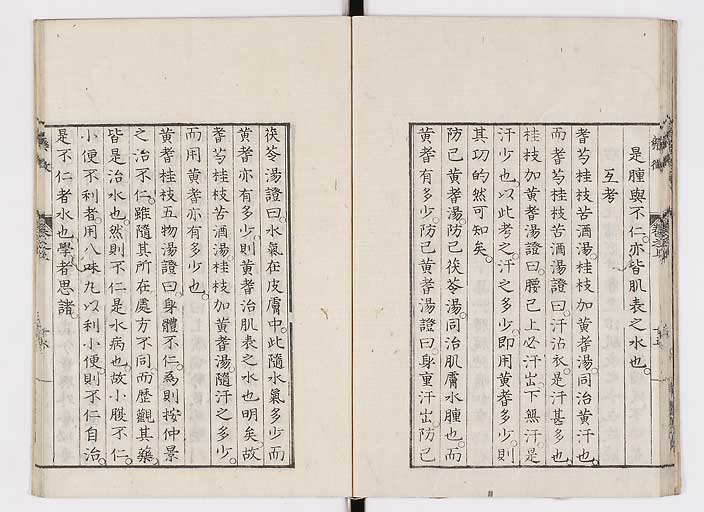 是腫與不仁亦皆肌表之水也
互考
耆芍桂枝苦酒湯桂枝加黃耆湯同治黃汗也
而耆芍桂枝苦酒湯證曰汗沾衣是汗甚多也
桂枝加黃耆湯證曰腰已上必汗出下無汗是
汗少也以此考之汗之多少即用黃耆多少則
其功的然可知矣
防已黃耆湯防已茯苓湯同治肌膚水腫也而
黃耆有多少防已黃耆湯證曰身重汗出防已
茯苓湯證曰水氣在皮膚中此隨水氣多少而
黃耆亦有多少則黃耆治肌表之水也明矣故
耆芍桂枝苦酒湯桂枝加黃耆湯隨汗之多少
而用黃耆亦有多少也
黃耆桂枝五物湯證曰身體不仁爲則按仲景
之治不仁雖隨其所在處方不同而歷觀其藥
皆是治水也然則不仁是水病也故小腹不仁
小便不利者用八味丸以利小便則不仁自治
是不仁者水也學者思諸